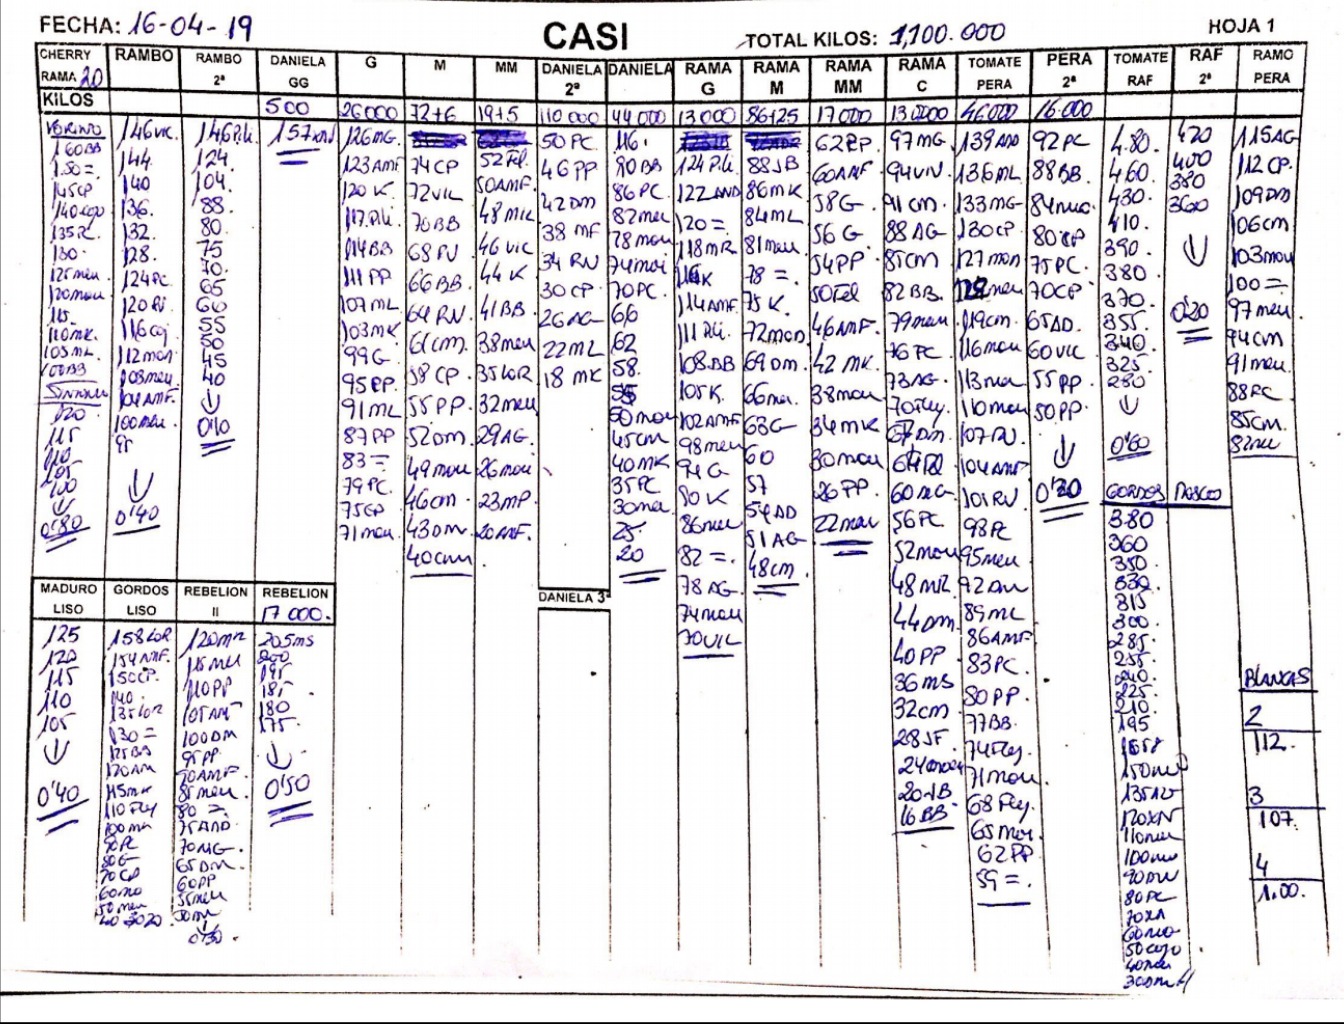 FECHA: 16-04-19
CASI
TOTAL KILOS: 1,100.000
HOJA 1
CHERRY RAMA 20
RAMBO
RAMBO 2ª
DANIELA GG
G
M
MM
DANIELA 2ª
DANIELA
RAMA G
RAMA M
RAMA MM
RAMA C
TOMATE PERA
PERA 2ª
TOMATE RAF
RAF 2ª
RAMO PERA
KILOS
500
26000
72+6
19+5
110000
44000
13000
86+25
17000
130000
46000
16.000
160BB
150=
145CP
135R
130-
125meu
120mou
115
110MK
105ML
100BB
120
115
110
105
100
0'80
146VIC
144
140
136.
132.
128.
124PC
120RV
116
112mon
108meu
104AMF
100meu
95
0'40
146Pili
124
104
88
80
75
70
65
60
55
50
45
40
0'10
157AND
126MG
123AMF
120K
117Pili
114BB
111PP
107ML
103MK
99G
95PP
91ML
87PP
83=
79PC
75CP
71mou
74CP
72VIC
70BB
68RV
66BB
64RV
61cm
58CP
55PP
52DM
49mou
46cm
43DM
40cm
50AMF
48MK
46VIC
44K
41BB
38meu
35LOR
32meu
29AG
26mou
23MP
20AMF
50PC
46PP
42DM
38MF
34RV
30CP
26AG
22ML
18MK
116
90BB
86PC
82meu
78mou
74moi
70PC
66
62
58
55
50mou
45cm
40MK
35PC
30meu
25-
20
124Pili
122AND
120=
118MR
116K
114AMF
111Pili
108BB
105K
102AMF
98meu
94G
90K
86meu
82=
78AG
74mou
70VIC
88JB
86MK
84ML
81mou
78=
75K
72mon
69DM
66meu
63G
60
57
54AD
51AG
48cm
62PP
60AMF
58G
56G
54PP
50Tel
46AMF
42MK
38mou
34MK
30mou
26PP
22mou
97MG
94VIV
91cm
88AG
85cm
82BB
79meu
76PC
73AG
70Fley
67DM
60AG
56PC
52mou
48MR
44DM
40PP
36MS
32cm
28JF
20JB
16BB
139AND
136ML
133MG
130CP
127mon
119cm
116mou
113meu
110mou
107RV
104AMF
101RV
98PC
95meu
92DM
89ML
86AMF
83PC
80PP
77BB
74Fley
71mou
68Fley
65mou
62PP
59=
92PC
88BB
84mou
80CP
75PC
70CP
65AD
60VIC
55PP
50PP
0'20
4.80
460
430
410
390
380
370
355
340
325
280
0'60
GORDOS
380
360
350
330
315
300
285
255
240
225
210
195
150
135AG
110meu
100mou
90DM
80PC
70
60
50cojo
40meu
30DM
420
400
380
360
0'20
115AG
112CP
109DM
106cm
103mou
100=
97meu
94cm
91meu
88PC
85cm
82meu
MADURO LISO
125
120
115
110
105
0'40
GORDOS LISO
158LOR
154AMF
150CP
140
135LOR
130=
125BB
120AM
115MK
110Fley
100MK
90PC
80G
70CP
60
50meu
REBELION II
120MR
115meu
110PP
105AMF
100DM
95PP
90AMF
85meu
80=
75AND
70MG
65DM
60PP
55meu
50
0'30
REBELION
17000.
205MS
200
195
185
180
175
0'50
DANIELA 3ª
BLANCAS
2
112.
3
107.
4
1.00.